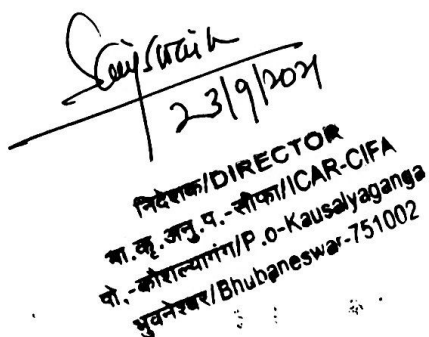 23/9/2021
निदेशक/DIRECTOR
भा.कृ.अनु.प.-सीफा/ICAR-CIFA
पो.-कौशल्यागंग/P.o-Kausalyaganga
भुवनेश्वर/Bhubaneswar-751002